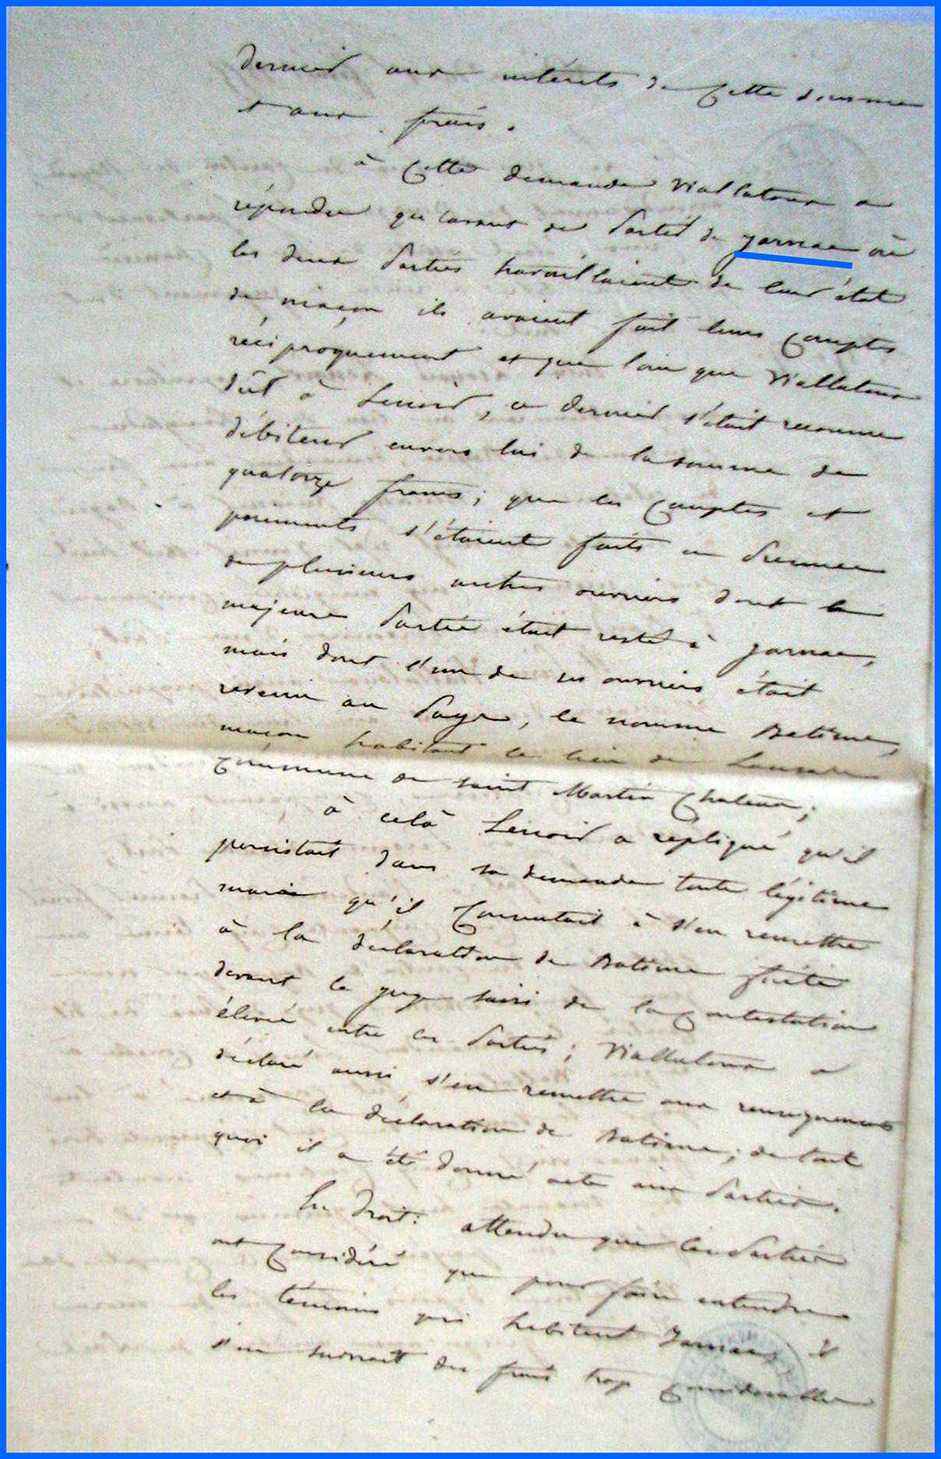 dernier aux intérets de cette somme
& aux frais.
à cette demande Viallatoux a
répondu qu'avant de partir de Jarnac où
les deux parties travaillaient de leur état
de maçon ils avaient fait leurs comptes
réciproquement et que loin que Viallatoux
dût à Lenoir, ce dernier s'était reconnu
débiteur envers lui de la somme de
quatorze francs; que les comptes et
paiements s'étaient faits en présence
de plusieurs autres ouvriers dont la
majeure partie était resté à Jarnac,
mais dont l'un de ses ouvriers était
revenu au pays, le nommé Batime,
maçon habitant le lieu de
commune de saint Martin Chateau;
à celà Lenoir a repliqué qu'il
persistait dans sa demande toute légitime
mais qu'il consentait à s'en remettre
à la déclaration de Batime faite
devant le juge saisi de la contestation
élevée entre les parties; Viallatoux a
déclaré aussi s'en remettre aux renseignements
et à la déclaration de Batime; de tout
quoi il a été donné acte aux parties.
En droit: attendu que les parties
ont considéré que pour faire entendre
les témoins qui habitent Jarnac, il
s'en suivrait des frais trop considerables